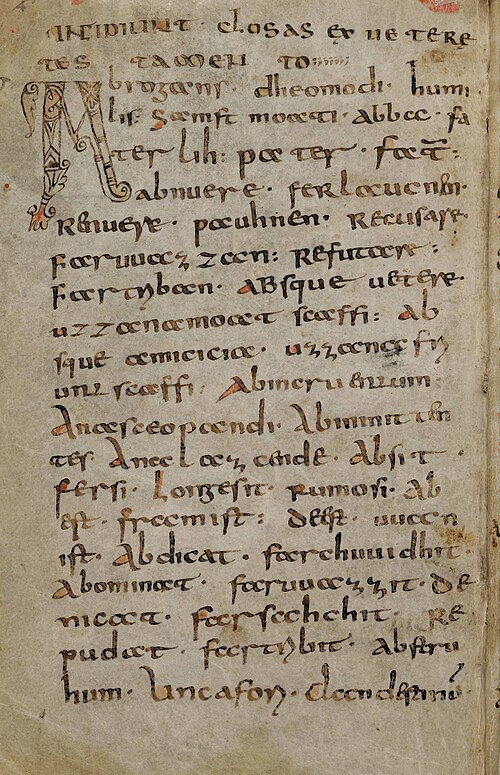 INCIPIUNT · CLOSAS EX UETERE
TES TAMEN TO
Abrogans · dheomodi · humi
lis: samft moati · abbae · fa
ter lih: pater · fat̄:
abnuere · ferlaucnen·
Renuere · pauhnen · Recusare·
faruuazzan: Refutare:
fartriban · Absque uetere·
uzzanamoat scaffi: Ab
sque amicicia · uzzanafri
unt scaffi: Abincruentum
Anasceopandi · Abminiten
ter Anelazcende · Absit ·
fersi · Longesit · rumosi · Ab
est · framist: deest · uuan
ist · Abdicat · farchuuidhit ·
Abominat · faruuazzit · de
nicat · farsahchit · Re
pudat · fartribit · Abstru
hum · Uncafori · clandestinū